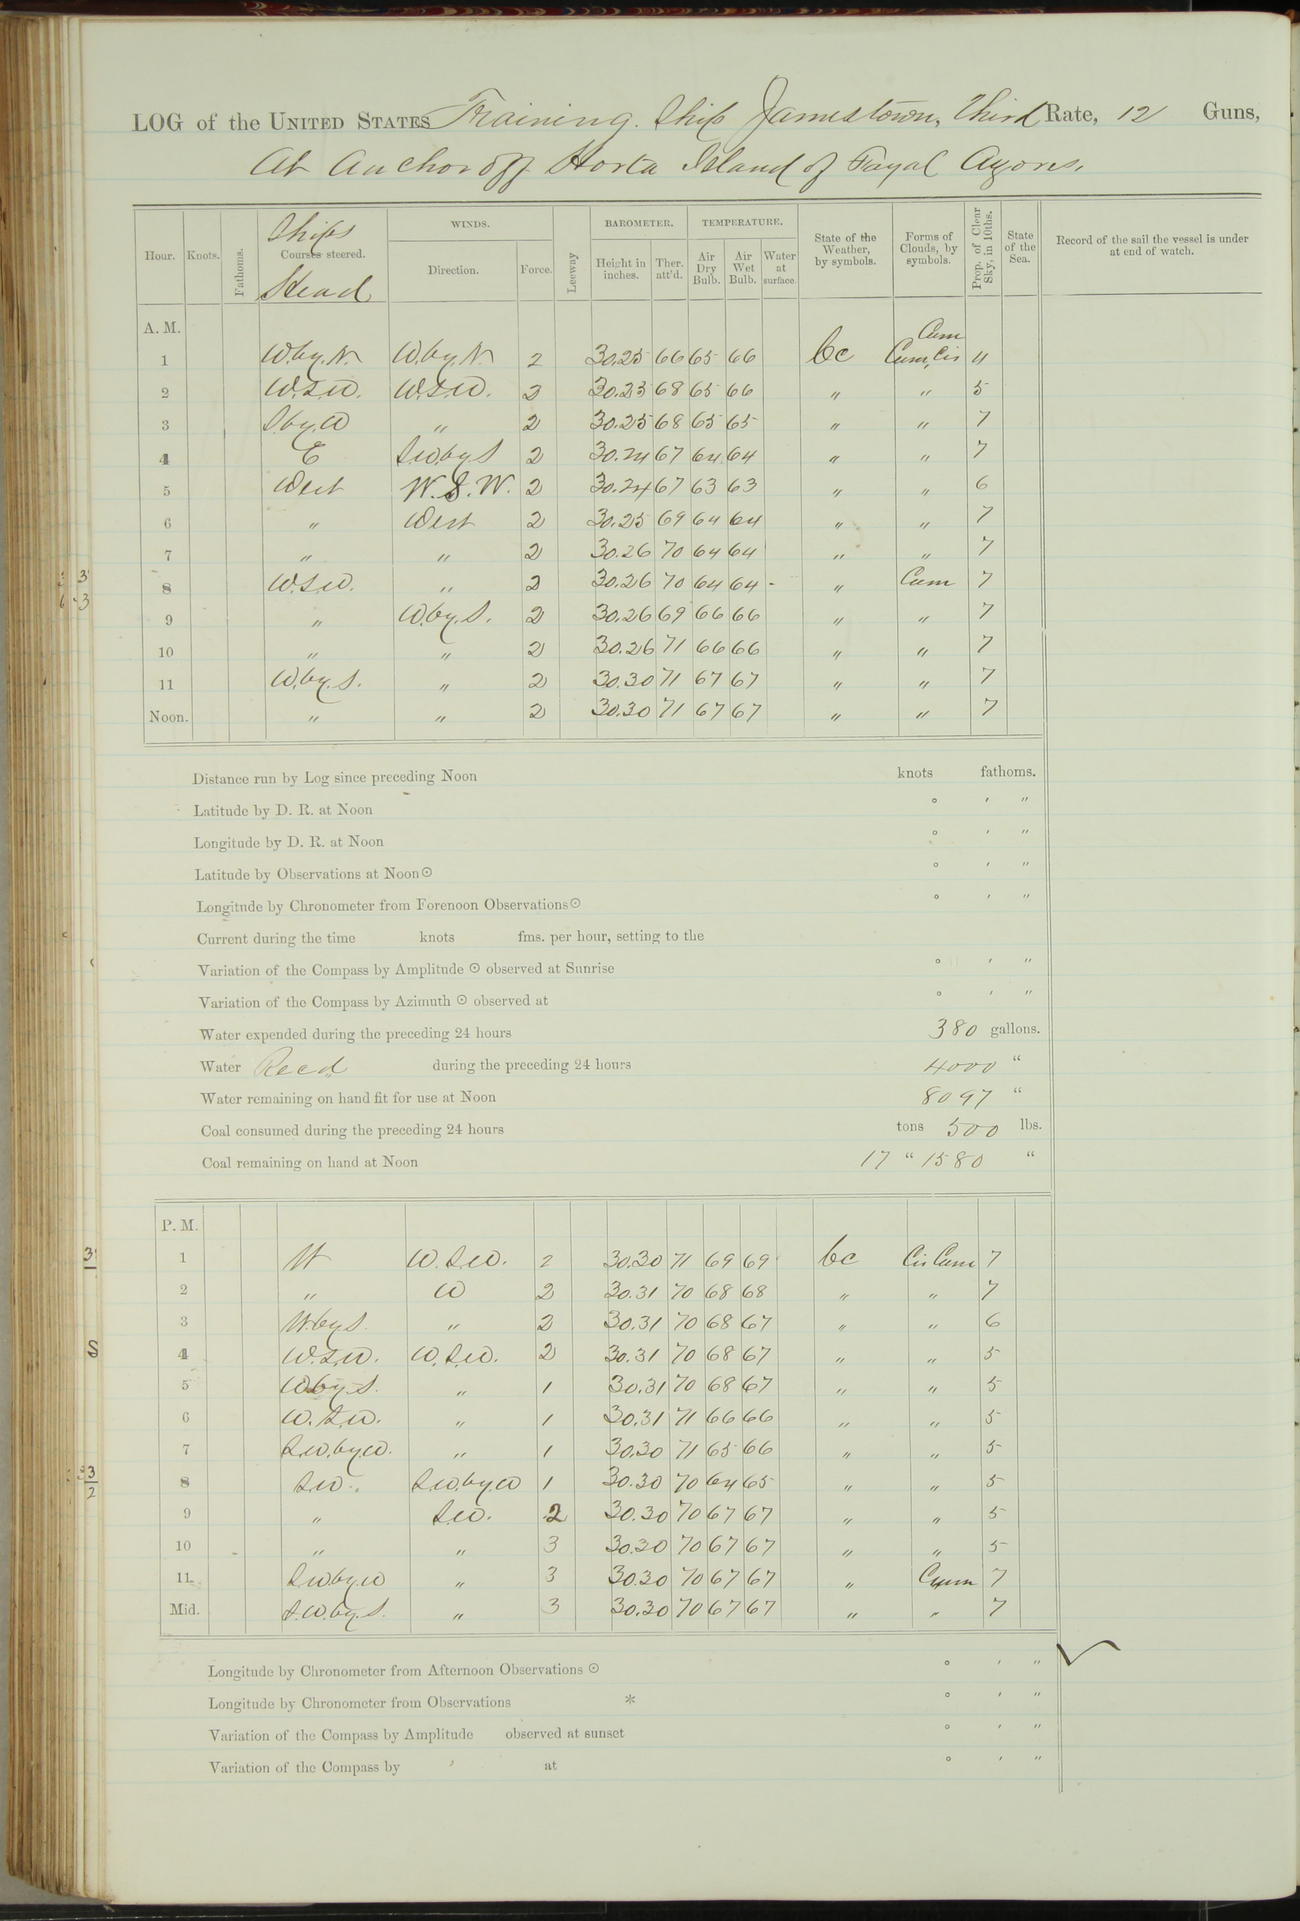 LOG of the UNITED STATES Training Ship Jamestown, Third Rate, 12 Guns,
At Anchor off Horta Island of Fayal Azores.
Ships Head
Hour. Knots. Fathoms. Courses steered. WINDS. Direction. Force. Leeway BAROMETER. Height in inches. Ther. att'd. TEMPERATURE. Air Dry Bulb. Air Wet Bulb. Water at surface. State of the Weather, by symbols. Forms of Clouds, by symbols. Prop. of Clear Sky, in 10ths. State of the Sea. Record of the sail the vessel is under at end of watch.
A. M.
Cum
1 W.by.N. W.by.N. 2 30.25 66 65 66 bc Cum, Cis 4
2 W.S.W. W.S.W. 2 30.25 68 65 66 " " 5
3 S.by.W " 2 30.25 68 65 65 " " 7
4 E S.W.by.S 2 30.24 67 64 64 " " 7
5 West W.S.W. 2 30.24 67 63 63 " " 6
6 " West 2 30.25 69 64 64 " " 7
7 " " 2 30.26 70 64 64 " " 7
8 W.S.W. " 2 30.26 70 64 64 " Cum 7
9 " W.by.S. 2 30.26 69 66 66 " " 7
10 " " 2 30.26 71 66 66 " " 7
11 W.by.S. " 2 30.30 71 67 67 " " 7
Noon. " " 2 30.30 71 67 67 " " 7
Distance run by Log since preceding Noon knots fathoms.
Latitude by D. R. at Noon ° ′ ″
Longitude by D. R. at Noon ° ′ ″
Latitude by Observations at Noon ☉ ° ′ ″
Longitude by Chronometer from Forenoon Observations ☉ ° ′ ″
Current during the time knots fms. per hour, setting to the
Variation of the Compass by Amplitude ☉ observed at Sunrise ° ′ ″
Variation of the Compass by Azimuth ☉ observed at ° ′ ″
Water expended during the preceding 24 hours 380 gallons.
Water Recd during the preceding 24 hours 4000 "
Water remaining on hand fit for use at Noon 8097 "
Coal consumed during the preceding 24 hours tons 500 lbs.
Coal remaining on hand at Noon 17 " 1580 "
P. M.
1 W W.S.W. 2 30.30 71 69 69 bc Cis Cum 7
2 " W 2 30.31 70 68 68 " " 7
3 W.by S. " 2 30.31 70 68 67 " " 6
4 W.S.W. W.S.W. 2 30.31 70 68 67 " " 5
5 W.by.S. " 1 30.31 70 68 67 " " 5
6 W.S.W. " 1 30.31 71 66 66 " " 5
7 S.W.by.W. " 1 30.30 71 65 66 " " 5
8 S.W. S.W.by.W 1 30.30 70 64 65 " " 5
9 " S.W. 2 30.30 70 67 67 " " 5
10 " " 3 30.30 70 67 67 " " 5
11 S.W.by.W " 3 30.30 70 67 67 " Cum 7
Mid. S.W.by.S. " 3 30.30 70 67 67 " " 7
Longitude by Chronometer from Afternoon Observations ☉ ° ′ ″
Longitude by Chronometer from Observations * ° ′ ″
Variation of the Compass by Amplitude observed at sunset ° ′ ″
Variation of the Compass by at ° ′ ″